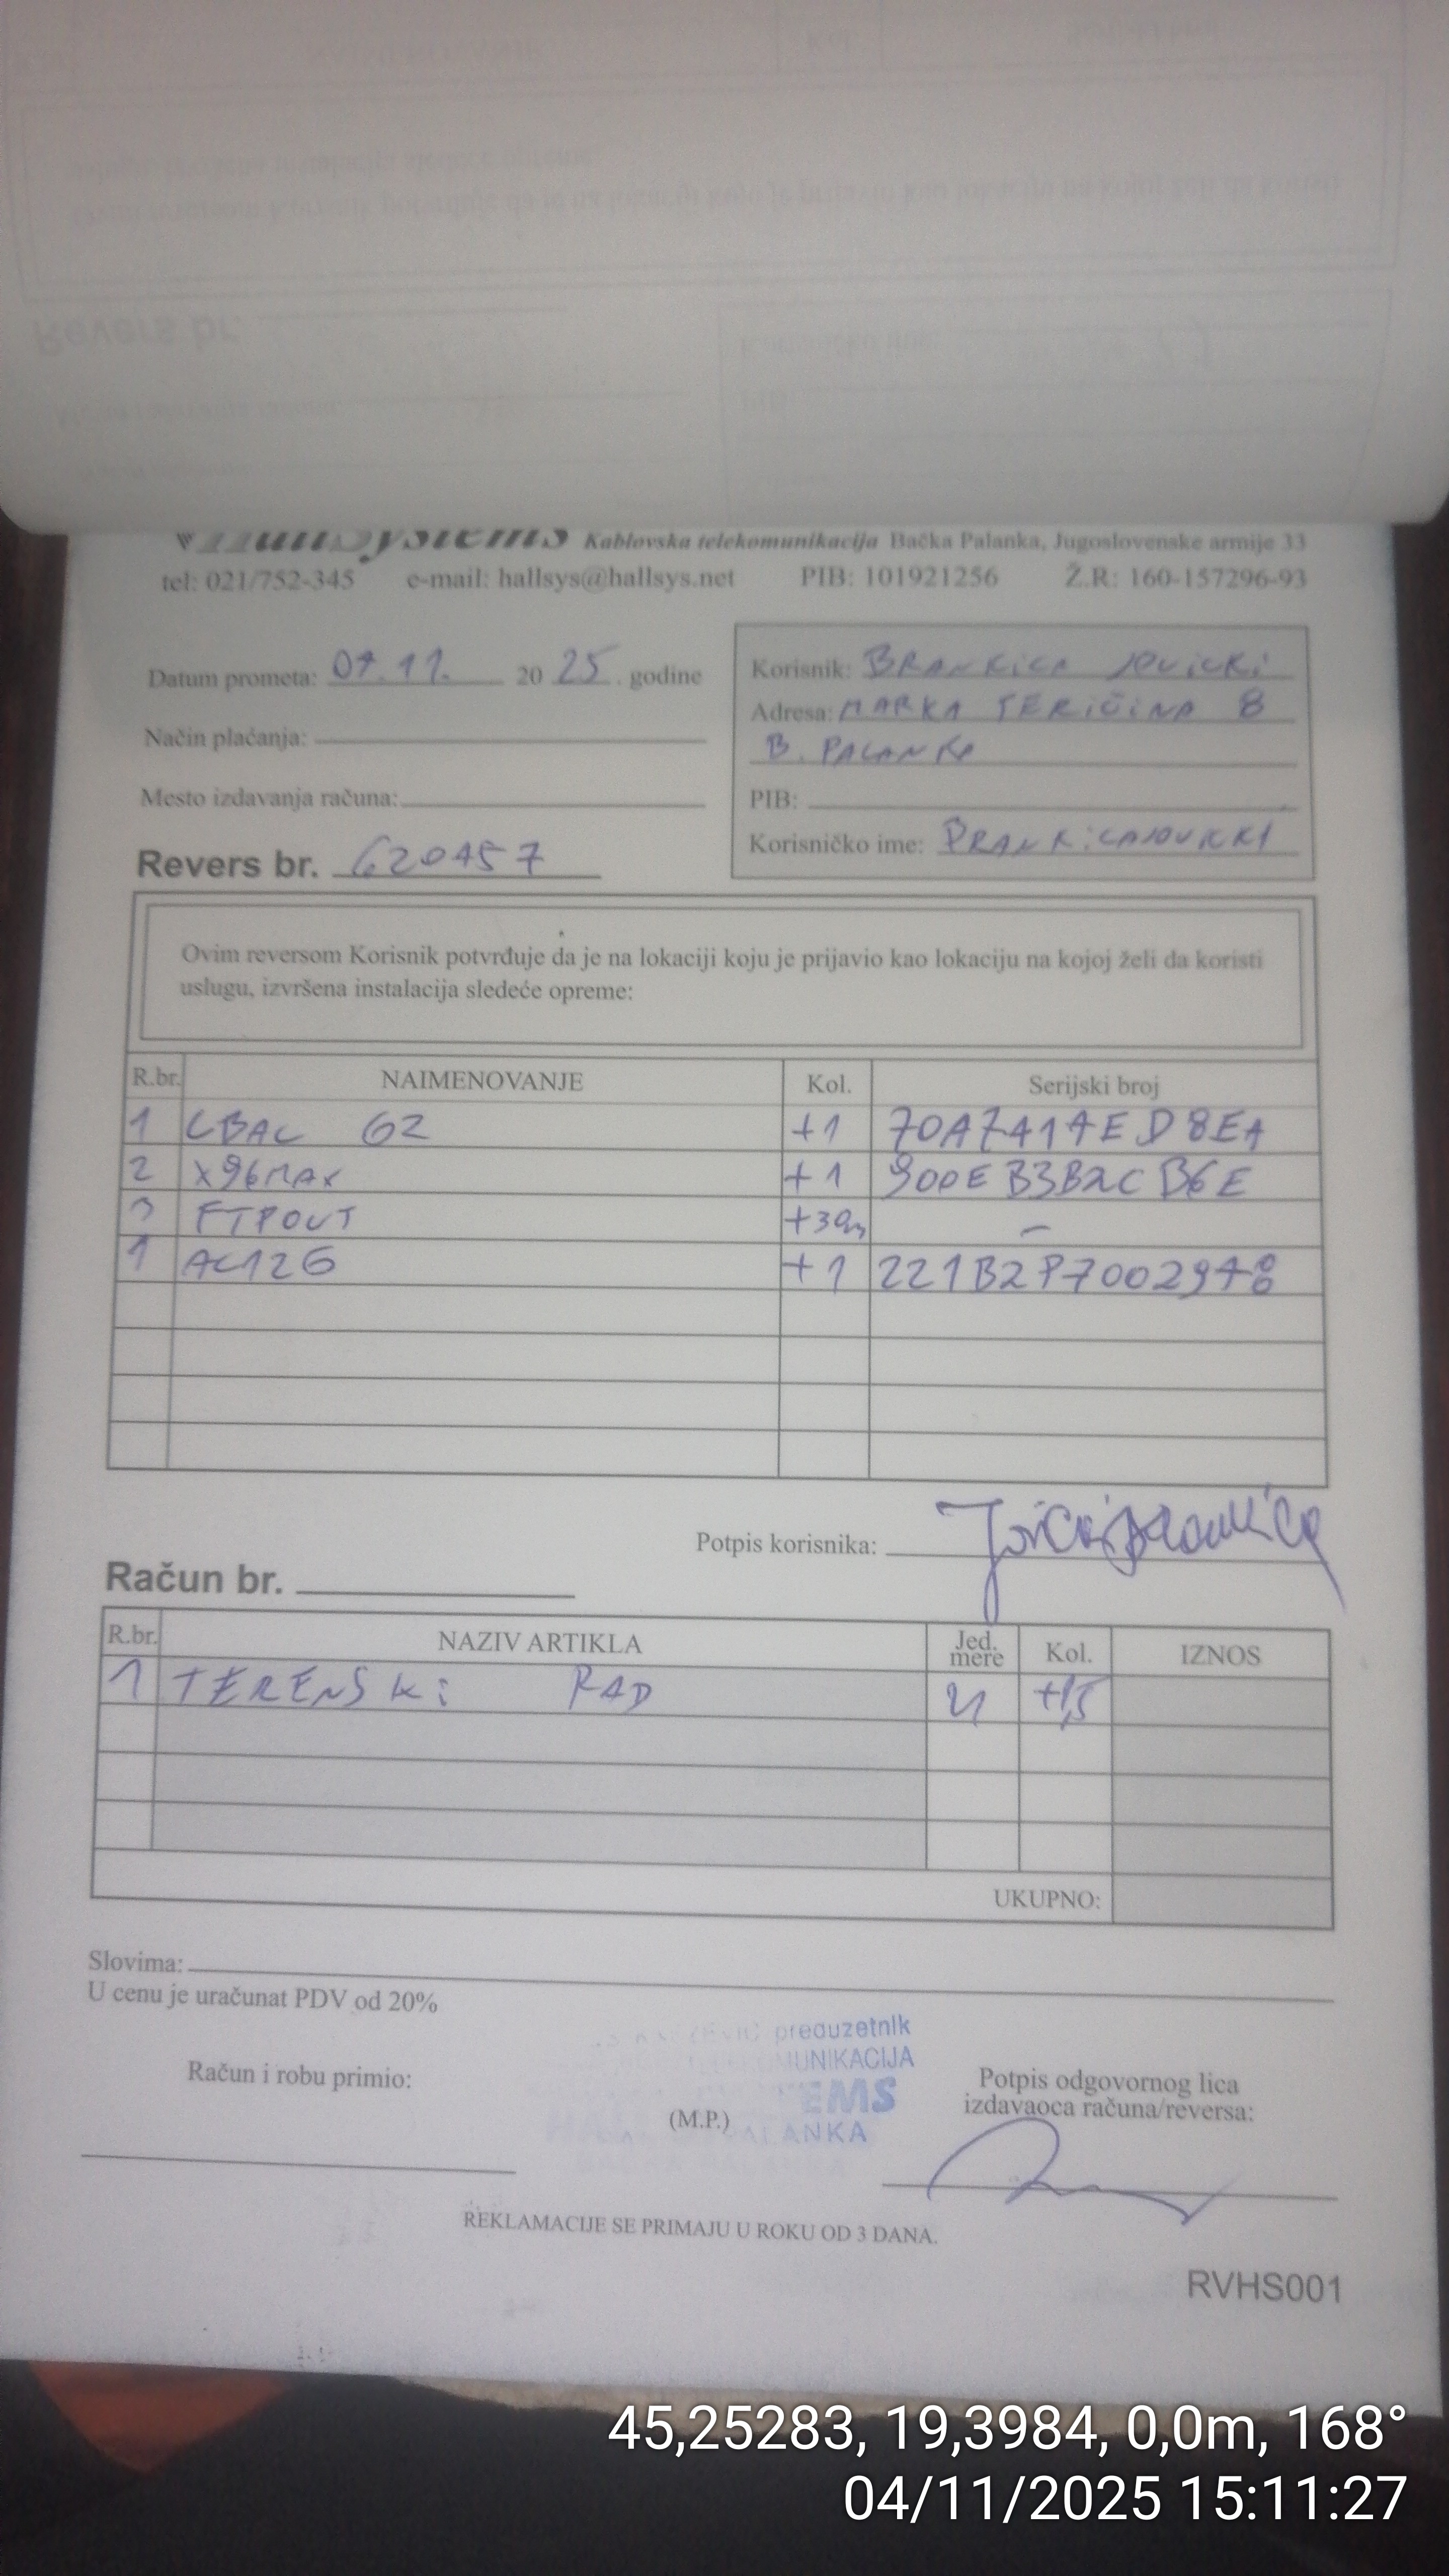 HallSystems Kablovska telekomunikacija Bačka Palanka, Jugoslovenske armije 33
tel: 021/752-345 e-mail: hallsys@hallsys.net PIB: 101921256 Ž.R: 160-157296-93
Datum prometa: 04.11. 20 25. godine
Način plaćanja:
Mesto izdavanja računa:
Revers br. 620457
Korisnik: BRANKICA JOVICKI
Adresa: MARKA PERIČINA 8
B. PALANKA
PIB:
Korisničko ime: BRANKICAJOVICKI
Ovim reversom Korisnik potvrđuje da je na lokaciji koju je prijavio kao lokaciju na kojoj želi da koristi
uslugu, izvršena instalacija sledeće opreme:
R.br. NAIMENOVANJE Kol. Serijski broj
1 CBAC G2 +1 70A7414ED8EA
2 X96MAX +1 900EB3B2CB6E
3 FTPOUT +30m –
1 AC12G +1 221B2P7002948
Potpis korisnika:
Račun br.
R.br. NAZIV ARTIKLA Jed. mere Kol. IZNOS
1 TERENSKI RAD
UKUPNO:
Slovima:
U cenu je uračunat PDV od 20%
preduzetnik
Račun i robu primio:
(M.P.)
Potpis odgovornog lica
izdavaoca računa/reversa:
REKLAMACIJE SE PRIMAJU U ROKU OD 3 DANA.
RVHS001
45,25283, 19,3984, 0,0m, 168°
04/11/2025 15:11:27